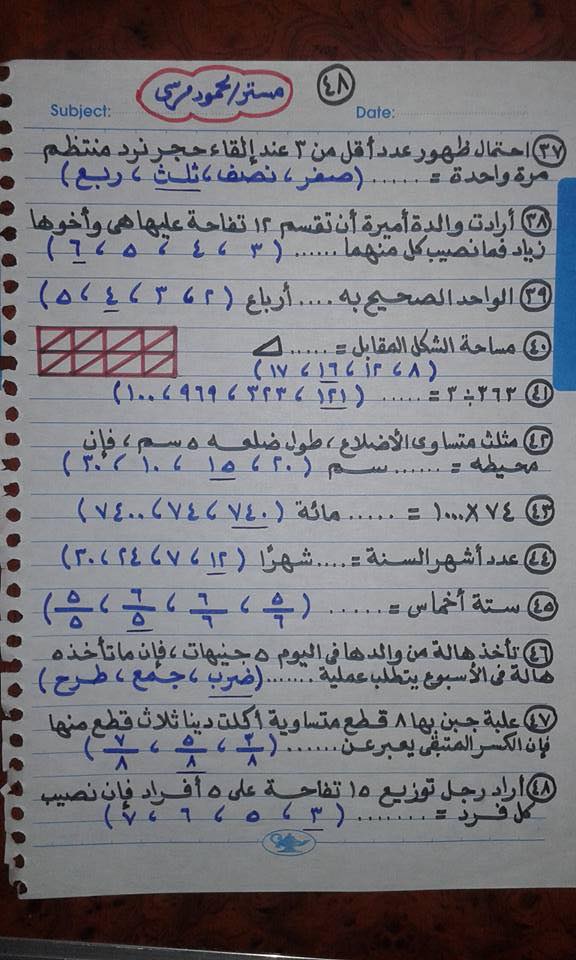 ٤٨
مستر/محمود مرسى
Subject:
Date:
٣٧ احتمال ظهور عدد أقل من ٣ عند إلقاء حجر نرد منتظم
مرة واحدة = ...... (صفر ، نصف ، ثلث ، ربع)
٣٨ أرادت والدة أميرة أن تقسم ١٢ تفاحة عليها هى وأخوها
زياد فما نصيب كل منهما ...... (٣ ، ٤ ، ٥ ، ٦)
٣٩ الواحد الصحيح به .... أرباع (٢ ، ٣ ، ٤ ، ٥)
٤٠ مساحة الشكل المقابل = .....
(٨ ، ١٢ ، ١٦ ، ١٧)
٤١ ٣٦٣ ÷ ٣ = ...... (١٢١ ، ٣٢٣ ، ٩٦٩ ، ١٠٠)
٤٢ مثلث متساوى الأضلاع ، طول ضلعه ٥ سم ، فإن
محيطه = ...... سم (٢٠ ، ١٥ ، ١٠ ، ٣٠)
٤٣ ٧٤ × ١٠٠٠ = ...... مائة (٧٤٠ ، ٧٤ ، ٧٤٠٠)
٤٤ عدد أشهر السنة = .... شهرًا (١٢ ، ٧ ، ٢٤ ، ٣٠)
٤٥ ستة أخماس = ...... (٥/٦ ، ٦/٦ ، ٦/٥ ، ٥/٥)
٤٦ تأخذ هالة من والدها فى اليوم ٥ جنيهات ، فإن ما تأخذه
هالة فى الأسبوع يتطلب عملية ...... (ضرب ، جمع ، طرح)
٤٧ علبة جبن بها ٨ قطع متساوية أكلت دينا ثلاث قطع منها
فإن الكسر المتبقى يعبر عن ...... (٣/٨ ، ٥/٨ ، ٧/٨)
٤٨ أراد رجل توزيع ١٥ تفاحة على ٥ أفراد فإن نصيب
كل فرد = ....... (٣ ، ٥ ، ٦ ، ٧)